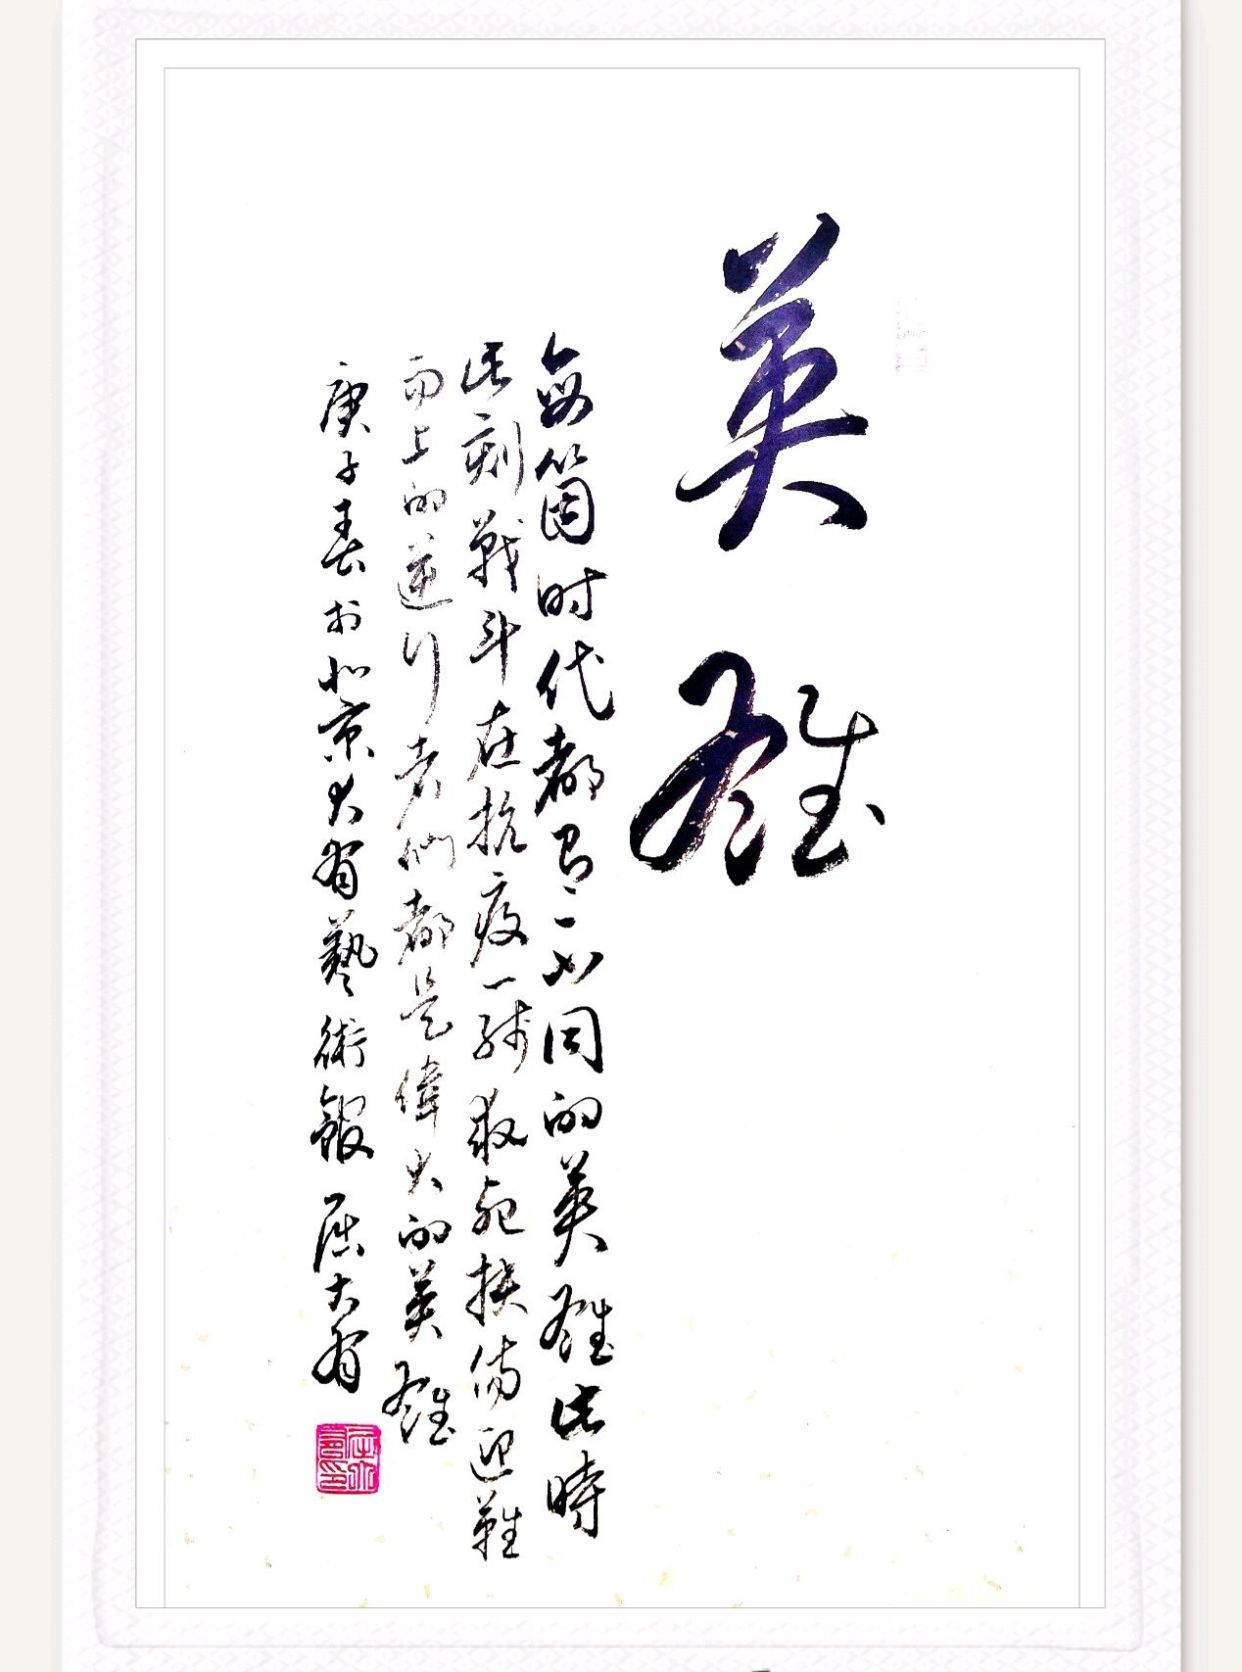 英雄
每箇时代都有不同的英雄此時
此刻戰斗在抗疫一綫救死扶傷迎難
而上的逆行者们都是偉大的英雄
庚子春於北京大有藝術館屈大有